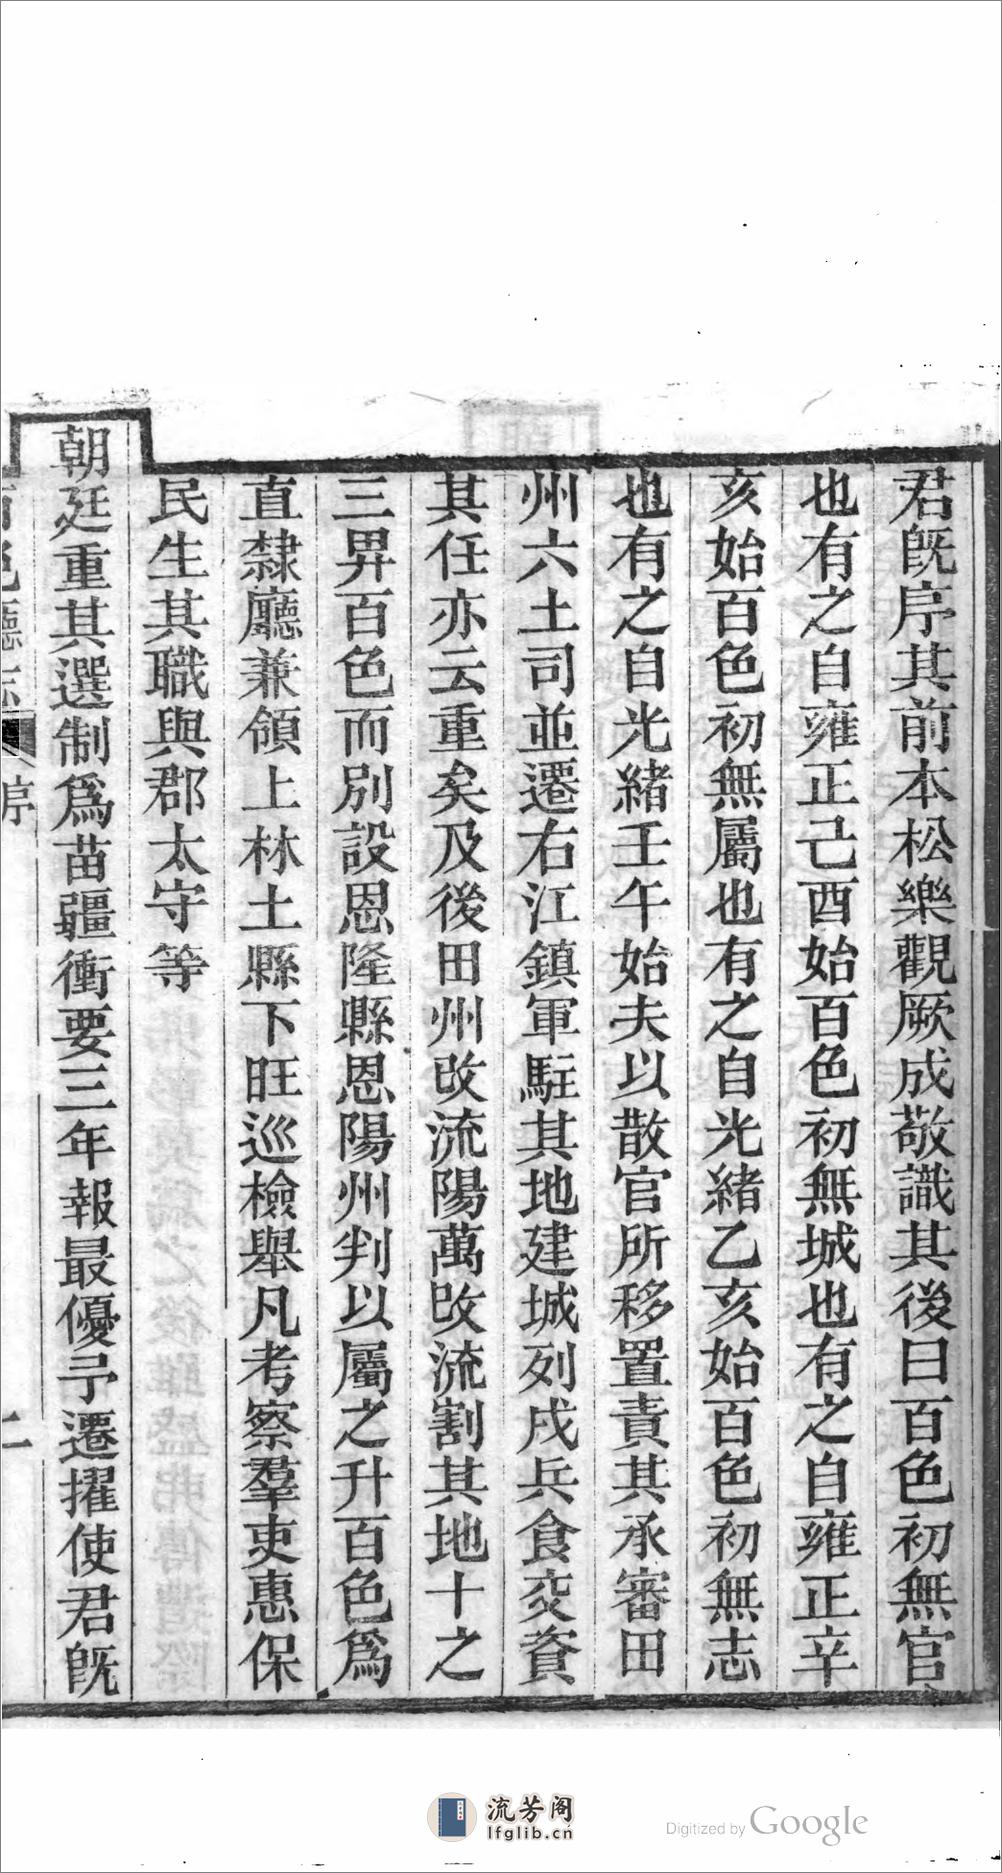 君旣序其前本松樂觀厥成敬識其後曰百色初無官
也有之自雍正己酉始百色初無城也有之自雍正辛
亥始百色初無屬也有之自光緒乙亥始百色初無志
也有之自光緒壬午始夫以散官所移置責其承審田
州六土司並遷右江鎮軍駐其地建城列戍兵食交資
其任亦云重矣及後田州改流陽萬改流割其地十之
三畀百色而別設恩隆縣恩陽州判以屬之升百色爲
直隸廳兼領上林土縣下旺巡檢舉凡考察羣吏惠保
民生其職與郡太守等
朝廷重其選制爲苗疆衝要三年報最優予遷擢使君旣
百色廳志 序 二
流芳阁
lfglib.cn
Digitized by Google